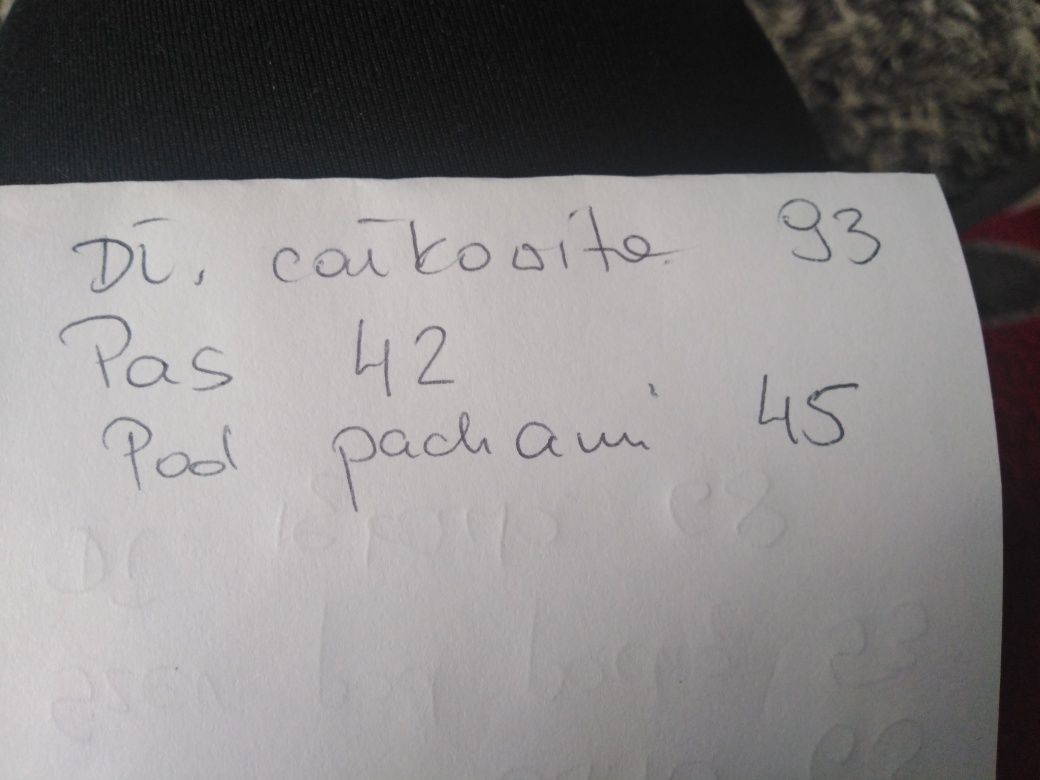 Dł. całkowita 93
Pas 42
Pod pachami 45